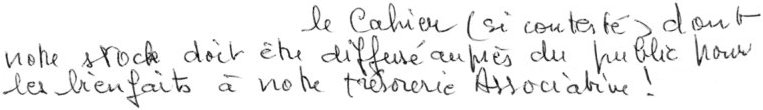 le Cahier (si contesté) dont
notre stock doit être diffusé auprès du public pour
les bienfaits à notre trésorerie Associative !